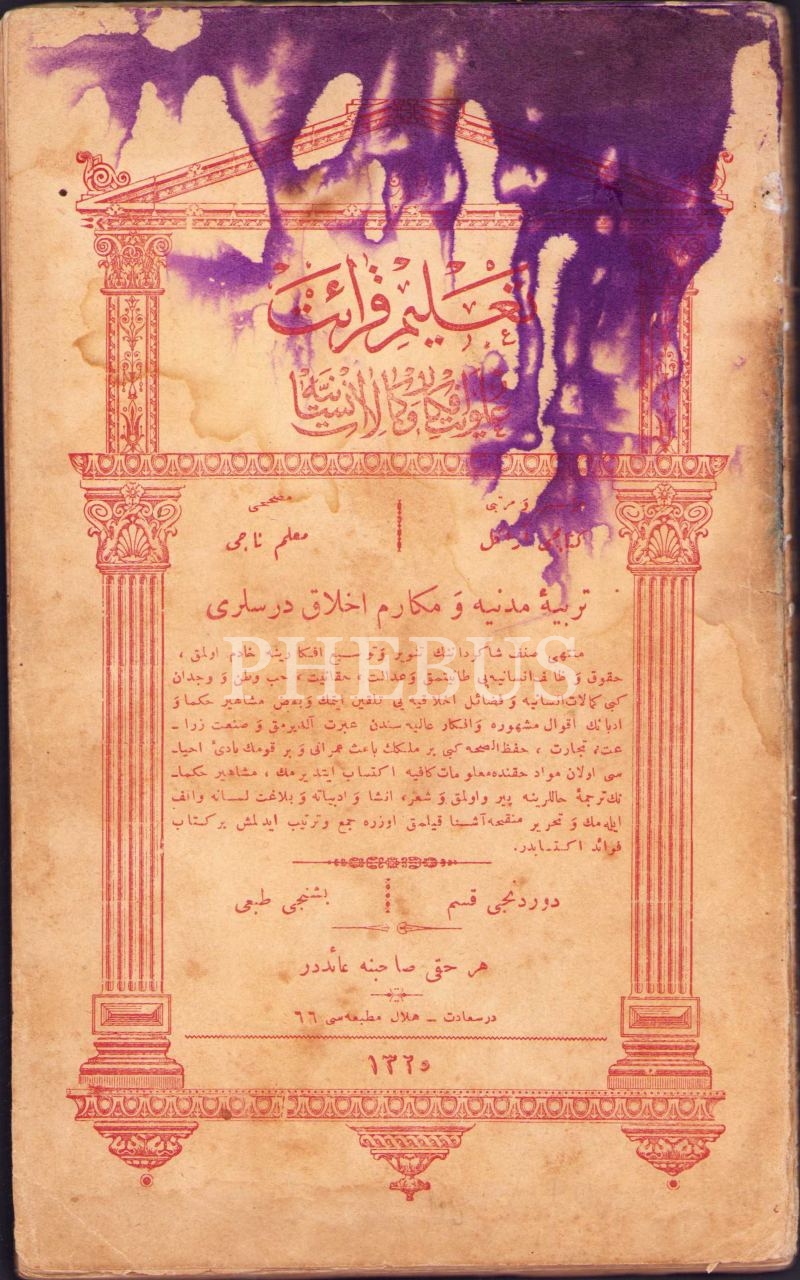 تعليم قرائت
علويت افكار و كمالات انسانيه
و مرتبى
مصححى
معلم ناجى
تربيۀ مدنيه و مكارم اخلاق درسلرى
منتهى صنف شاكرداننك تنوير و توسيع افكارينه خادم اولمق ،
حقوق و وظائف انسانيه يى طانيتمق و عدالت ، حقانيت ، حب وطن و وجدان
كبى كمالات انسانيه و فضائل اخلاقيه يى تلقين ايتمك و بعض مشاهير حكما و
ادبانك اقوال مشهوره و افكار عاليه سندن عبرت آلديرمق و صنعت زرا ـ
عت ، تجارت ، حفظ الصحه كبى بر ملكك باعث عمرانى و بر قومك بادئ احيا ـ
سى اولان مواد حقنده معلومات كافيه اكتساب ايتديرمك ، مشاهير حكما ـ
نك ترجمۀ حاللرينه پيرو اولمق و شعر ، انشا و ادبياته و بلاغت لسانه واقف
ايله مك و تحرير منقحه آشنا قيلمق اوزره جمع و ترتيب ايدلمش بر كتاب
فرائد اكتسابدر .
دوردنجى قسم
بشنجى طبعى
هر حقى صاحبنه عائددر
درسعادت ـ هلال مطبعه سى ٦٦
١٣٢٥
PHEBUS